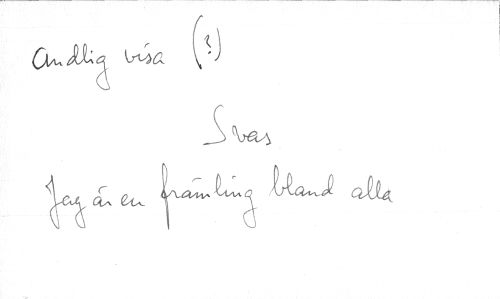 Andlig visa (?)
Svas
Jag är en främling bland alla